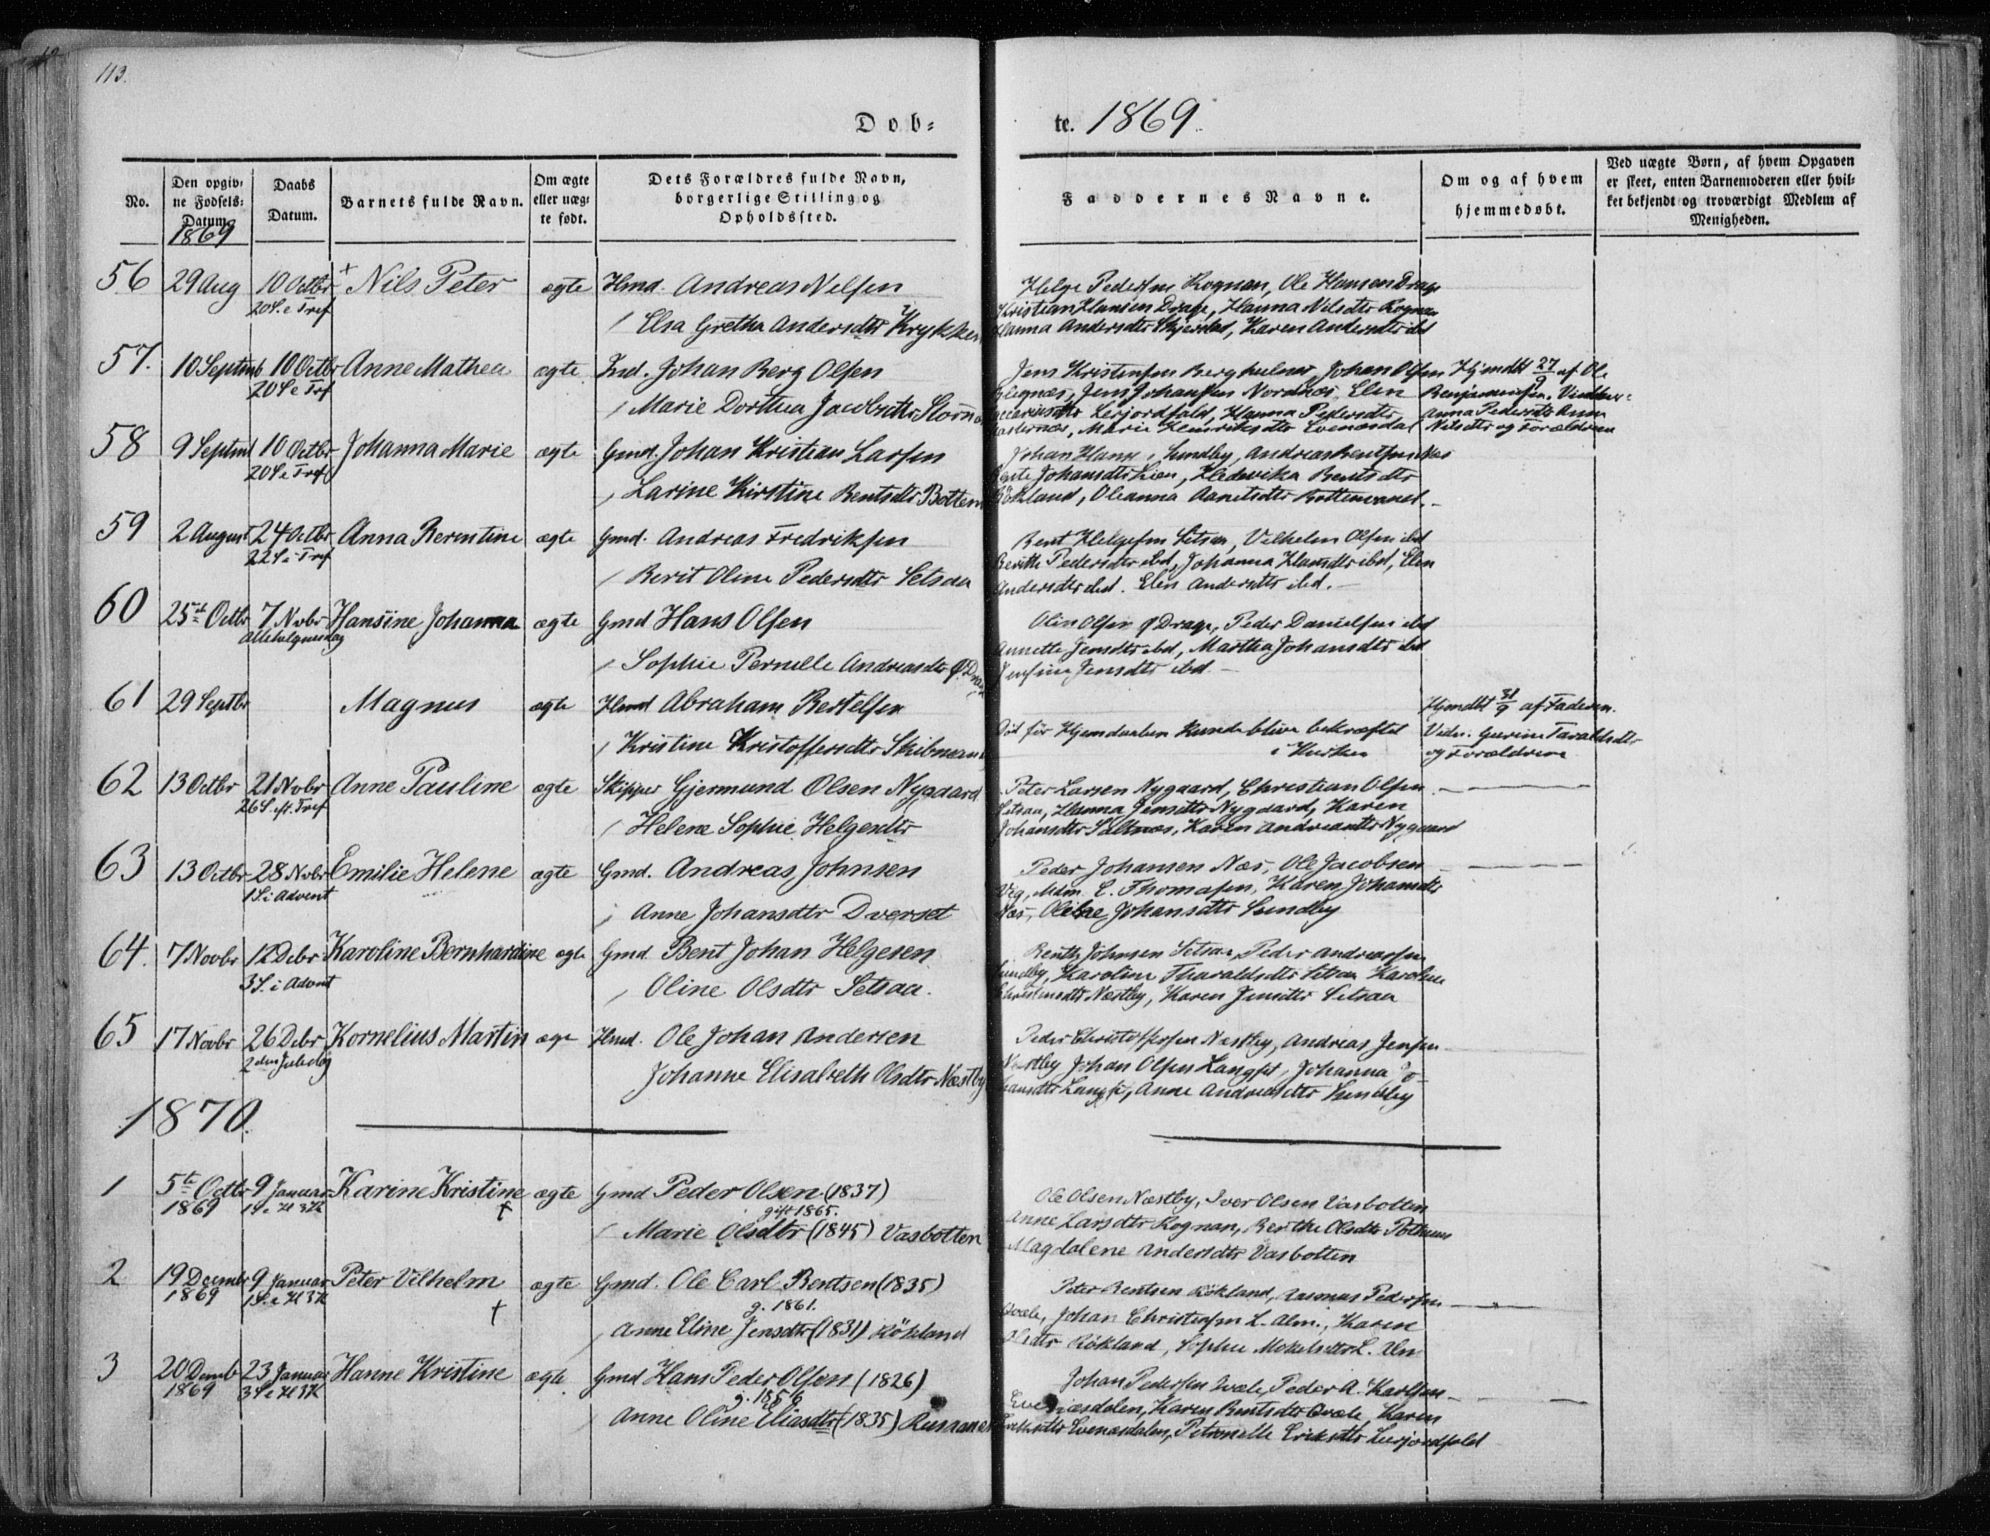 113.
Døb-
te. 1869.
No.
Den opgiv-
ne Fødsels-
Datum.
1869
Daabs
Datum.
Barnets fulde Navn.
Om ægte
eller uæg-
te født.
Dets Forældres fulde Navn,
borgerlige Stilling og
Opholdssted.
Faddernes Navne.
Om og af hvem
hjemmedøbt.
Ved uægte Børn, af hvem Opgaven
er skeet, enten Barnemoderen eller hvil-
ket bekjendt og troværdigt Medlem af
Menigheden.
56 29 Aug 10 Octbr Nils Peter ægte Hmd. Andreas Nilsen
20 S. e Tref
Elsa Gretha Andersdtr Krykken
Helge Pedersen Rognan, Ole Hansen Drage
Kristian Hansen Drage, Hanna Nilsdtr Rognan
Hanna Andersdtr Skjerstad, Karen Andersdtr ibd
57. 10 Septmb 10 Octbr Anne Mathea ægte Ind. Johan Berg Olsen
20 S e Tref
Marie Dorthea Jacobsdtr Storm
Jens Kristensen Berghulnes, Johan Olsen
Jens Johansen Nordnæs, Elen
Lerjordfald, Hanna Pedersdtr
Marie Henriksdtr Evenæsdal
Hjemdbt 27/9 af Ole
Benjaminsen. Vidner:
Anna Pedersdtr Anne
Nilsdtr og Forældrene
58 9 Septmb 10 Octbr Johanna Marie ægte Gmd. Johan Kristian Larsen
20 S e Tref
Larine Kirstine Bentsdtr Botten
Johan Hans. Sundby, Andreas Bentsen Næs
Johansdtr Lien, Hedevika Bentsdtr
Røkland, Oleanna Aanetsdtr Bottenvand.
59 2 August 24 Octbr Anna Berentine ægte Gmd. Andreas Fredriksen
22 S e Tref
Berit Oline Pedersdtr Setsaa
Bent Helgesen Setsaa, Vilhelm Olsen ibd
Berith Pedersdtr ibd, Johanna Hansdtr ibd, Elen
Andersdtr ibd. Elen Andersdtr ibd.
60 25de Octbr 7 Nvbr Hansine Johanna ægte Gmd Hans Olsen
Allehelgensdag
Sophie Pernelle Andreasdtr Ø. Drage
Olin Olsen Ø Drage, Peder Danielsen ibd
Annette Jensdtr ibd, Martha Johansdtr ibd
Jensine Jensdtr ibd
61 29 Septbr Magnus ægte Hmd Abraham Bertelsen
Kristine Kristoffersdtr Skibmand
Død før Hjemdaaben kunde blive bekræftet
i Kirken
Hjemdbt 31/9 af Faderen.
Vidn. Gurine Taraldsdtr
og Forældrene
62 13 Octbr 21 Nvbr Anne Pauline ægte Skipper Gjermund Olsen Nygaard
26 S. eft. Tref
Helene Sophie Helgesdtr
Peter Larsen Nygaard, Christian Olsen
Setsaa, Hanna Jensdtr Nygaard, Karen
Johansdtr Saltnæs, Karen Andreasdtr Nygaard
63 13 Octbr 28 Nvbr Emilie Helene ægte Gmd. Andreas Johnsen
1 S. i Advent
Anne Johansdtr Dverset
Peder Johansen Næs, Ole Jacobsen
Vig, Mdm. E. Thomasen, Karen Johansdtr
Næs, Oline Johansdtr Sundby
64. 7 Novbr 12 Debr Karoline Bernhardine ægte Gmd Bent Johan Helgesen
3 S. i Advent
Oline Olsdtr Setsaa.
Benth Johnsen Setsaa, Peder Andreassen
Sundby, Karoline Tharaldsdtr Setsaa Karoline
Christensdtr Næstby, Karen Jensdtr Setsaa
65 17 Novbr 26 Debr Kornelius Martin ægte Hmd. Ole Johan Andersen
2den Juledag
Johanne Elisabeth Olsdtr Næstby
Peder Christoffersen Næstby, Andreas Jensen
Næstby Johan Olsen Langst, Johanna Jo-
hansdtr Langst, Anne Andreasdtr Sundby
1870.
1 5te Octbr 9 Januar Karine Kristine ægte Gmd Peder Olsen (1837)
1869 1 S. e H 3 K
gift 1865.
Marie Olsdtr (1845) Vasbotten
Ole Olsen Næstby, Iver Olsen Vasbotten
Anne Larsdtr Rognan, Berthe Olsdtr Pothus
Magdalene Andersdtr Vasbotten
2 19 Decmb 9 Januar Peter Vilhelm ægte Gmd. Ole Carl Bentsen (1835)
1869 1 S. e H 3 K
g. 1861.
Anne Eline Jensdtr (1831) Røkland
Peter Bentsen Røkland, Rasmus Pedersen
Qvale, Johan Christensen L. Alm., Karen
Olsdtr Røkland, Sophie Mikelsdtr L. Alm
3 20 Decmb 23 Januar Hanne Kristine ægte Gmd Hans Peder Olsen (1826)
1869 3 S e H 3 K
g. 1856
Anne Oline Eliasdtr (1835) Rusaanes
Johan Pedersen Qvale, Peder A. Karlsen
Evenæsdalen, Karen Bentsdtr Qvale, Karen
Eriksdtr Evenæsdalen, Petronelle Eriksdtr Lerjordfald